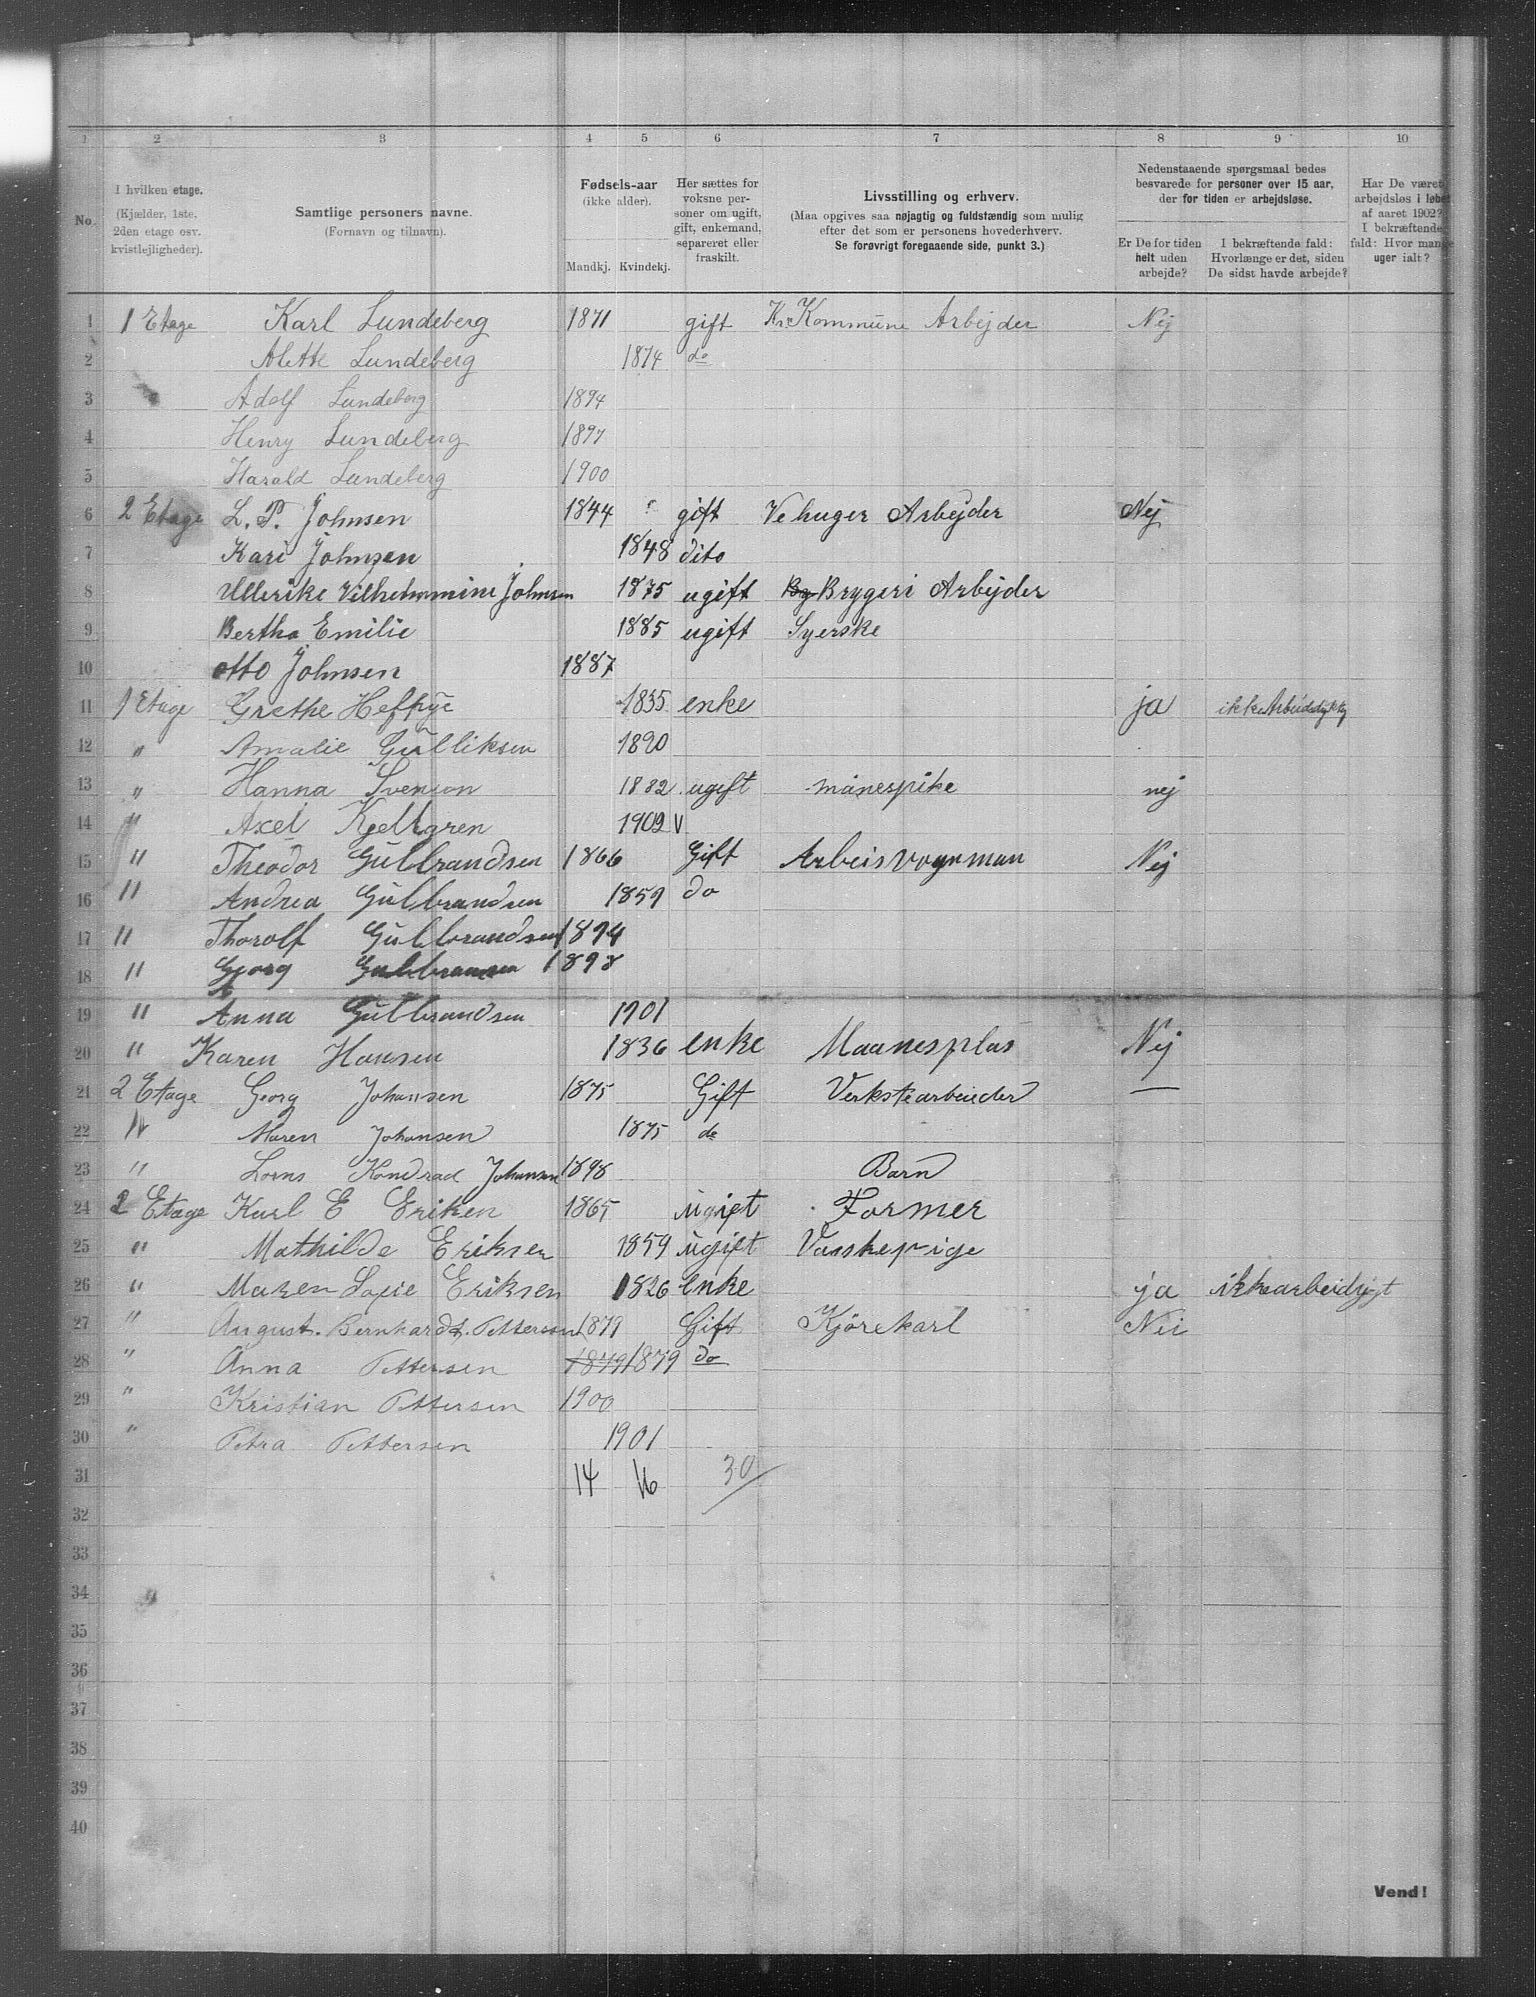 1 2 3 4 5 6 7 8 9 10
No.
I hvilken etage.
(Kjælder, 1ste.
2den etage osv.
kvistlejligheder).
Samtlige personers navne.
(Fornavn og tilnavn).
Fødsels-aar
(ikke alder).
Mandkj. Kvindekj.
Her sættes for
voksne per-
soner om ugift,
gift, enkemand,
separeret eller
fraskilt.
Livsstilling og erhverv.
(Maa opgives saa nøjagtig og fuldstændig som mulig
efter det som er personens hovederhverv.
Se forøvrigt foregaaende side, punkt 3.)
Nedenstaaende spørgsmaal bedes
besvarede for personer over 15 aar,
der for tiden er arbejdsløse.
Er De for tiden
helt uden
arbejde?
I bekræftende fald:
Hvorlænge er det, siden
De sidst havde arbejde?
Har De været
arbejdsløs i løbet
af aaret 1902?
I bekræftende
fald: Hvor mange
uger ialt?
1 1 Etage Karl Lundeberg 1871 gift Kr. Kommune Arbejder Nej
2 Alette Lundeberg 1874 do
3 Adolf Lundeberg 1894
4 Henry Lundeberg 1897
5 Harald Lundeberg 1900
6 2 Etage L. P. Johnsen 1844 gift Vehuger Arbejder Nej
7 Kari Johnsen 1848 dito
8 Ullerike Vilhelmmine Johnsen 1875 ugift By Brygeri Arbejder
9 Bertha Emilie 1885 ugift Syerske
10 Otto Johnsen 1887
11 1 Etage Grethe Heffrye 1835 enke ja ikke Arbeidsdygtig
12 " Amalie Gulliksen 1890
13 " Hanna Svenson 1882 ugift månespike nej
14 " Axel Kjellgren 1902 V
15 " Theodor Gulbrandsen 1866 Gift Arbeisvognman Nej
16 " Andrea Gulbrandsen 1859 do
17 " Thorolf Gulbrandsen 1894
18 " Georg Gulbransen 1898
19 " Anna Gulbrandsen 1901
20 " Karen Hansen 1836 enke Maanesplas Nej
21 2 Etage Georg Johansen 1875 Gift Verkstearbeider —
22 " Maren Johansen 1875 do
23 " Lorns Kondrad Johansen 1898 Barn
24 2 Etage Karl E Eriken 1865 ugift Former
25 " Mathilde Eriksen 1859 ugift Vasskepige
26 " Maren Sofie Eriksen 1826 enke ja ikkearbeidygt
27 " August. Bernhardt. Pettersen 1879 Gift Kjörekarl Nei
28 " Anna Pettersen 1879 1879 do
29 " Kristian Pettersen 1900
30 " Petra Pettersen 1901
31 14 16 30
32
33
34
35
36
37
38
39
40
Vend!